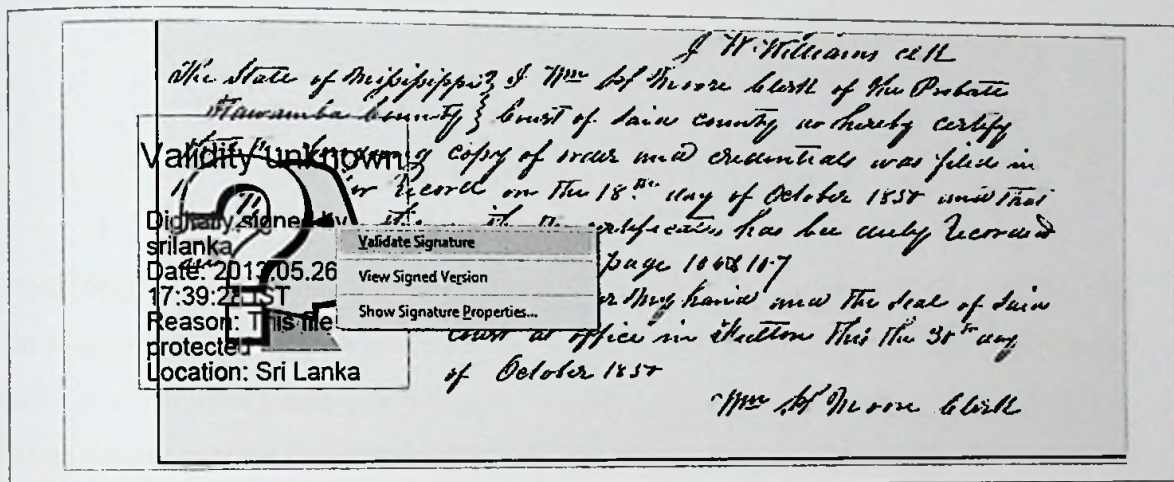 J W Williams clk
The State of Mississippi } I Wm H Moore Clerk of the Probate
Itawamba County } Court of Said County do hereby certify
copy of order and credentials was filed in
for Record on the 18th day of October 1850 and that
the certificates has been duly Recorded
page 106 & 107
my hand and the Seal of Said
Court at office in Fulton this the 30th day
of October 1850
Wm H Moore Clerk
Validity unknown
Digitally signed by
srilanka
Date: 2013.05.26
17:39:2 IST
Reason: This file
protected
Location: Sri Lanka
Validate Signature
View Signed Version
Show Signature Properties...